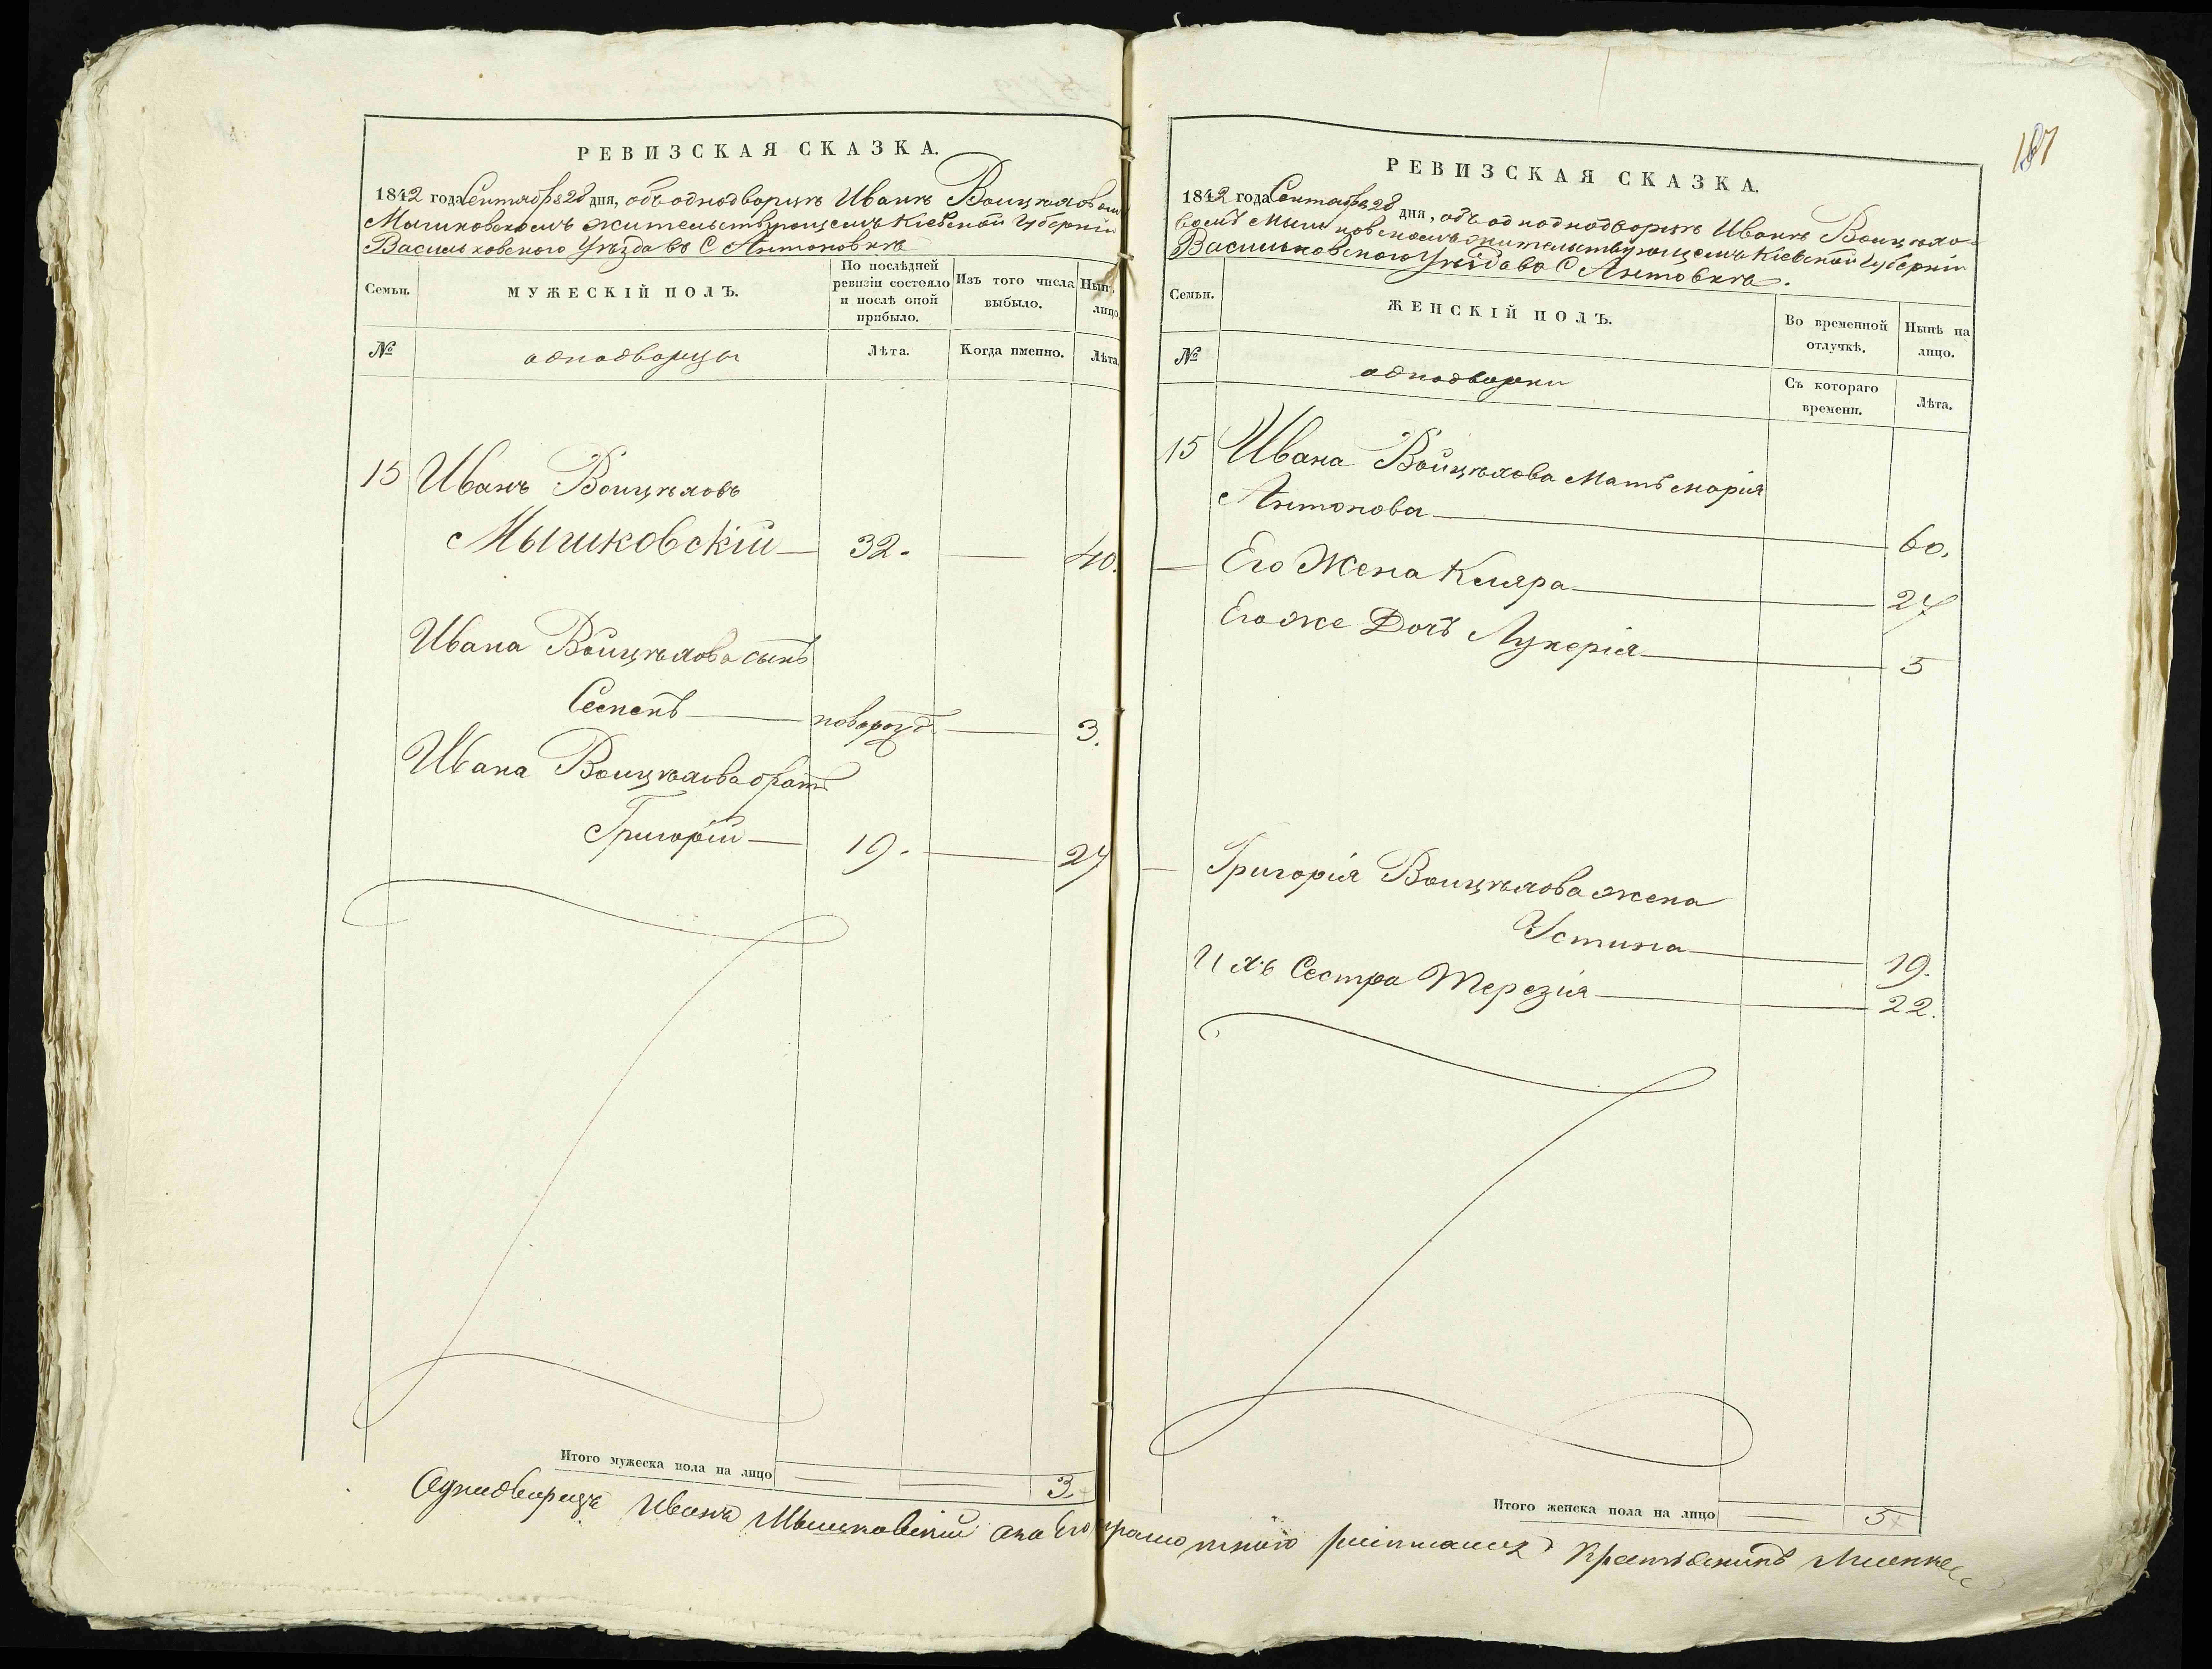 РЕВИЗСКАЯ СКАЗКА.
1842 года Сентября 28 дня, объ однодворцѣ Иванѣ Войцѣховом
Мышковскомъ жительствующемъ Кіевской Губерніи
Васильковского Уѣзда въ С Антоновкѣ
Семьи.
МУЖЕСКІЙ ПОЛЪ.
По послѣдней
ревизіи состояло
и послѣ оной
прибыло.
Изъ того числа
выбыло.
Нын
лицо
№
однодворцы
Лѣта.
Когда именно.
Лѣта
15 Иванъ Войцѣховъ
Мышковскій 32. 40.
Ивана Войцѣхова сынъ
Семенъ новорожд 3.
Ивана Войцѣхова братъ
Григорій 19. 27
Итого мужеска пола на лицо 3.
187
РЕВИЗСКАЯ СКАЗКА.
1842 года Сентября 28 дня, объ однодворцѣ Иванѣ Войцѣхо-
вомъ Мышковскомъ жительствующемъ Кіевской Губерніи
Васильковского Уѣзда во С Антовкѣ.
Семьи.
ЖЕНСКІЙ ПОЛЪ.
Во временной
отлучкѣ.
Нынѣ на
лицо.
№
однодворки
Съ котораго
времени.
Лѣта.
15 Ивана Войцѣхова Мать Марія
Антонова 60.
Его Жена Кляра 27
Его же Дочь Лукерія 5
Григорія Войцѣхова жена
Устина 19.
Ихъ Сестра Терезія 22.
Итого женска пола на лицо 5
Однодворецъ Иванъ Мышковскій а за его